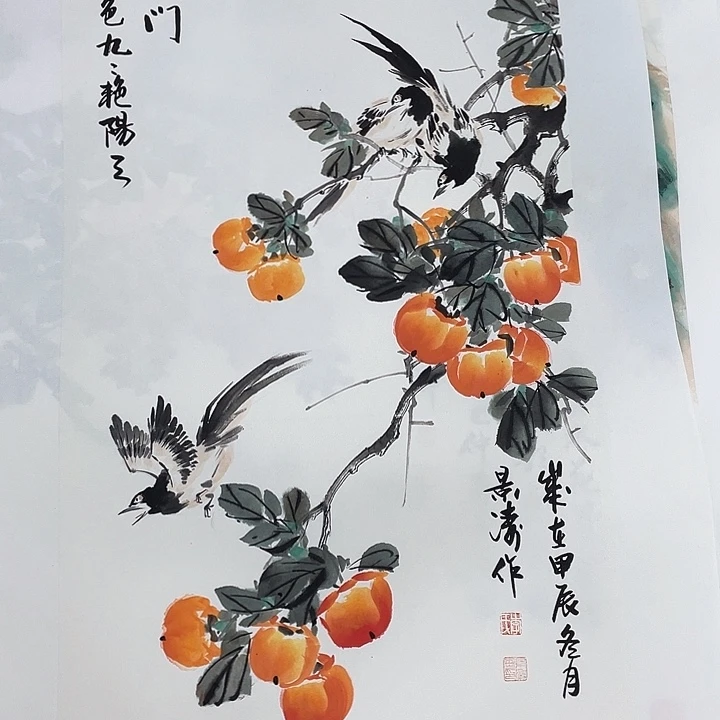 门
色九〻艳陽天
歲在甲辰冬月
景涛作